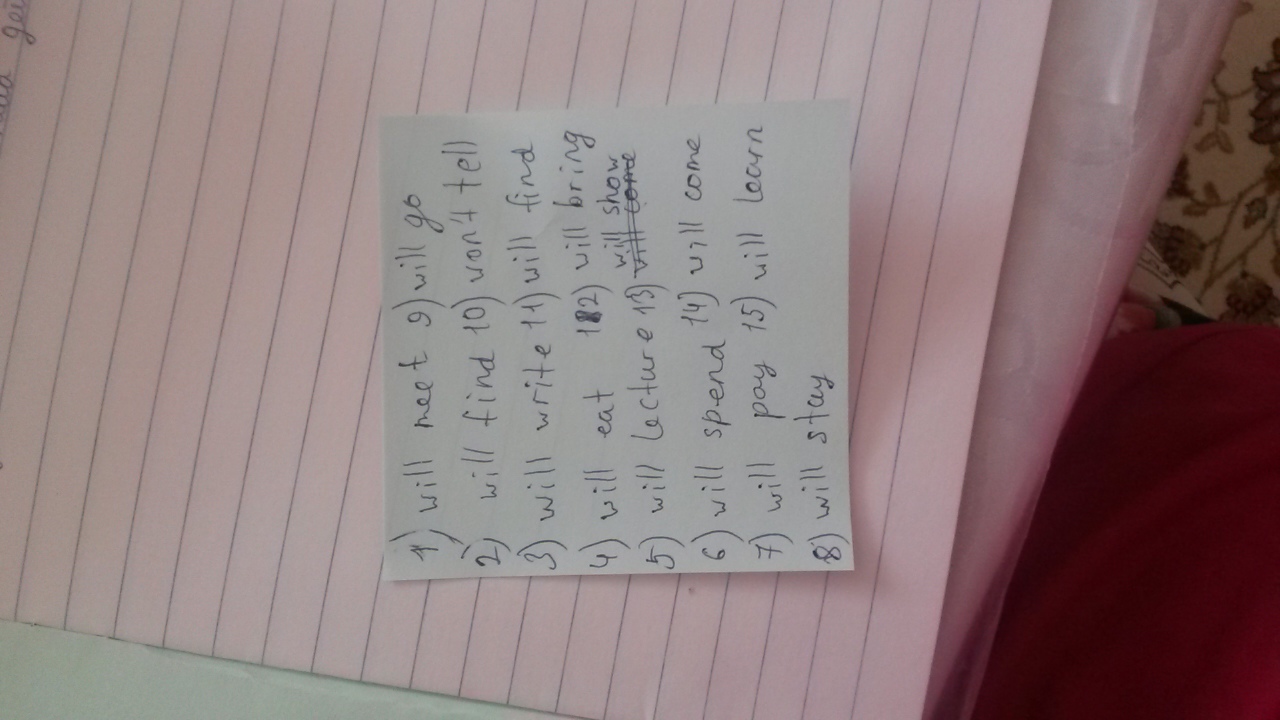 1) will meet 9) will go
2) will find 10) won't tell
3) will write 11) will find
4) will eat 12) will bring
will show
5) will lecture 13) will come
6) will spend 14) will come
7) will pay 15) will learn
8) will stay